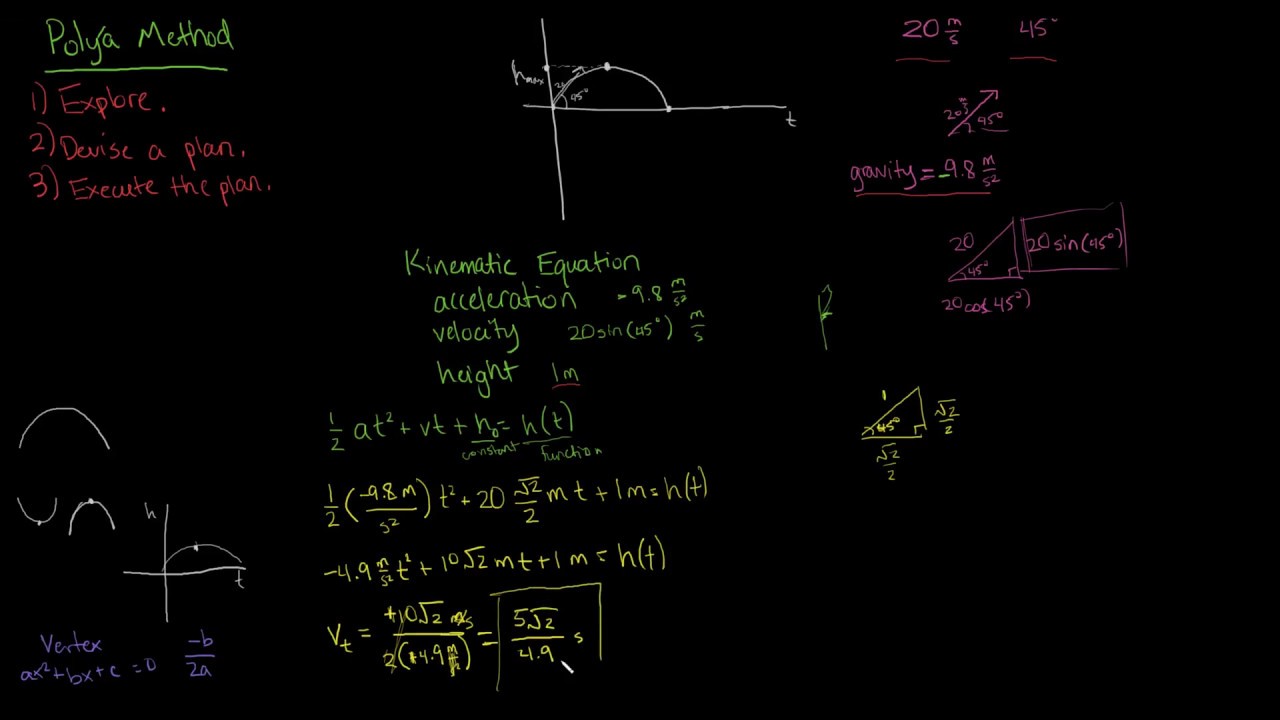 Polya Method
1) Explore.
2) Devise a plan.
3) Execute the plan.
h_max
45°
t
20 m/s 45°
20 m/s 45°
gravity = -9.8 m/s²
20 45° 20 sin(45°)
20 cos(45°)
Kinematic Equation
acceleration -9.8 m/s²
velocity 20 sin(45°) m/s
height 1m
1/2 at² + vt + h₀ = h(t)
constant function
1/2 (-9.8 m/s²) t² + 20 √2/2 m t + 1 m = h(t)
-4.9 m/s² t² + 10√2 m t + 1 m = h(t)
V_t = +10√2 m/s / 2(+4.9 m/s²) = 5√2/4.9 s
1 45° √2/2
√2/2
h
t
Vertex
ax² + bx + c = 0
-b/2a